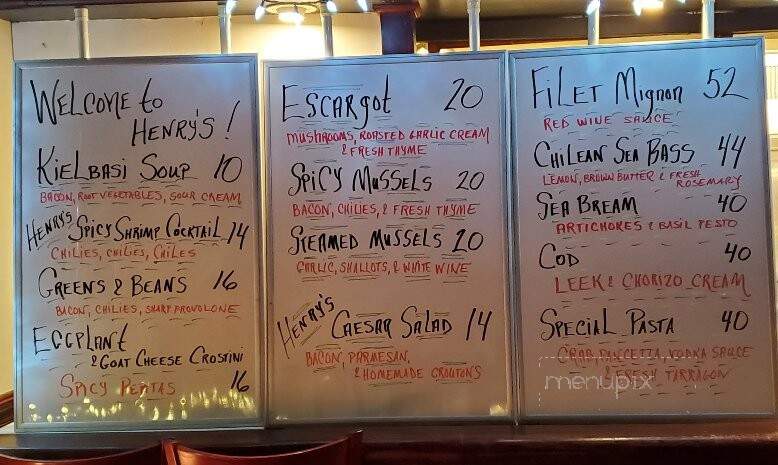 Welcome to
Henry's!
Kielbasi Soup 10
Bacon, Root Vegetables, Sour Cream
Henry's Spicy Shrimp Cocktail 14
Chilies, Chilies, Chiles
Greens & Beans 16
Bacon, Chilies, Sharp Provolone
Eggplant
& Goat Cheese Crostini
Spicy Peptas 16
Escargot 20
Mushrooms, Roasted Garlic Cream
& Fresh Thyme
Spicy Mussels 20
Bacon, Chilies, & Fresh Thyme
Steamed Mussels 20
Garlic, Shallots, & White Wine
Henry's Caesar Salad 14
Bacon, Parmesan,
& Homemade Croutons
Filet Mignon 52
Red Wine Sauce
Chilean Sea Bass 44
Lemon, Brown Butter & Fresh
Rosemary
Sea Bream 40
Artichokes & Basil Pesto
Cod 40
Leek & Chorizo Cream
Special Pasta 40
Crab, Pancetta, Vodka Sauce
& Fresh Tarragon
menupix